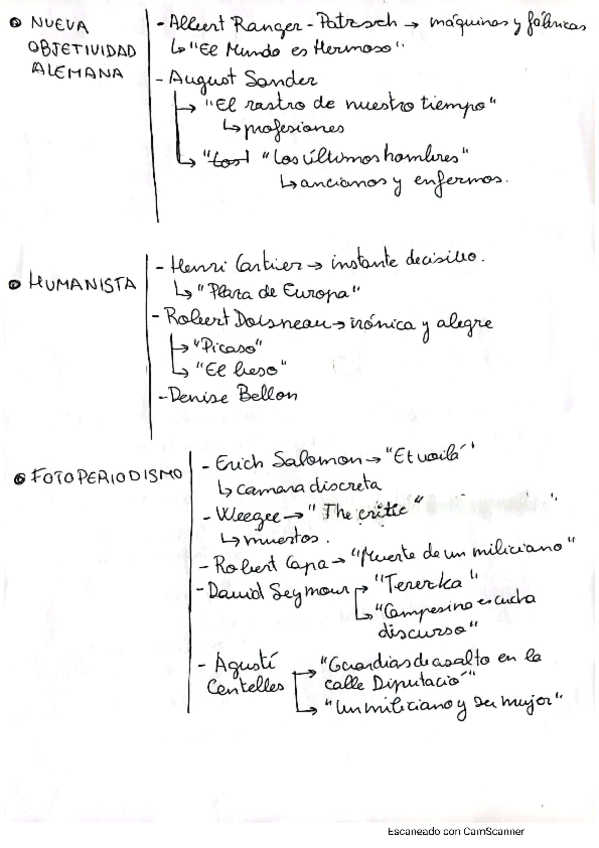 NUEVA
OBJETIVIDAD
ALEMANA
- Albert Ranger - Patzsch → máquinas y fábricas
↳ "El Mundo es Hermoso"
- August Sander
→ "El rastro de nuestro tiempo"
↳ profesiones
→ "Los últimos hombres"
↳ ancianos y enfermos.
HUMANISTA
- Henri Cartier → instante decisivo.
↳ "Plaza de Europa"
- Robert Doisneau → irónica y alegre
→ "Picaso"
→ "El beso"
- Denise Bellon
FOTOPERIODISMO
- Erich Salomon → "Et voilá"
↳ camara discreta
- Weegee → "The critic"
↳ muertos.
- Robert Capa → "Muerte de un miliciano"
- David Seymour → "Terezka"
→ "Campesino escucha
discurso"
- Agustí
Centelles
→ "Guardias de asalto en la
calle Diputació"
→ "Un miliciano y su mujer"
Escaneado con CamScanner